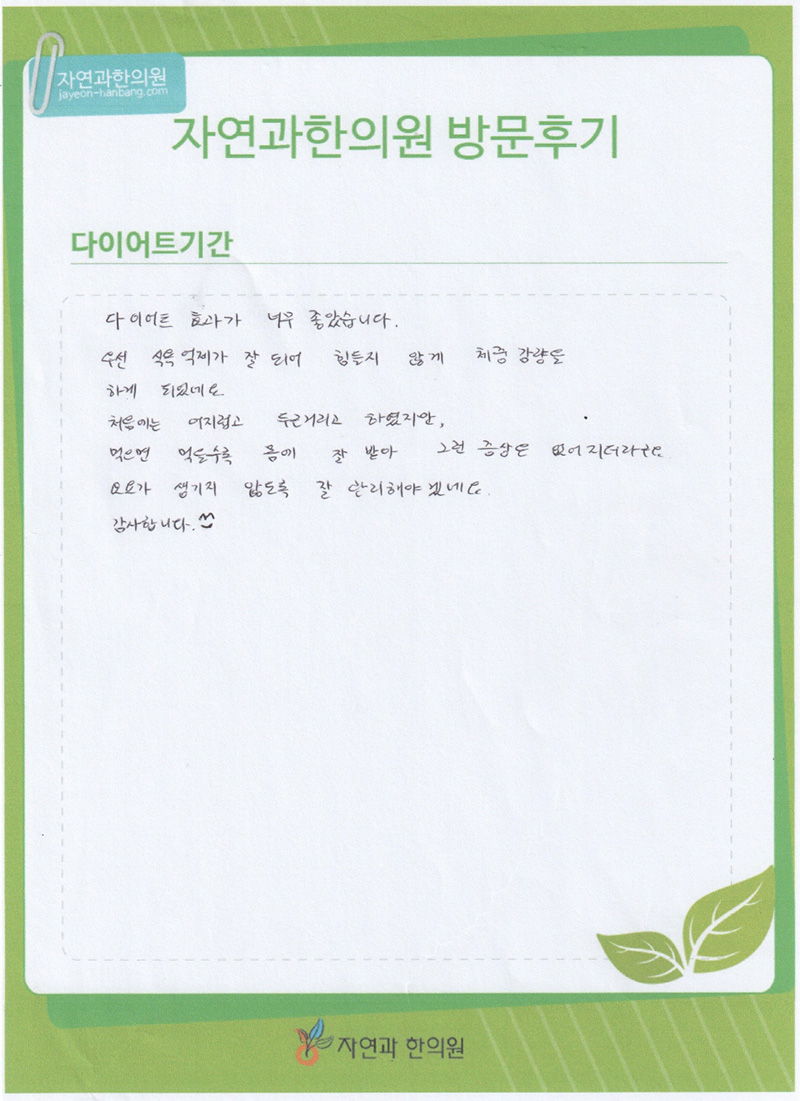 자연과한의원
jayeon-hanbang.com
자연과한의원 방문후기
다이어트기간
다이어트 효과가 너무 좋았습니다.
우선 식욕억제가 잘 되어 힘들지 않게 체중감량을
하게 되었네요
처음에는 어지럽고 두근거리고 하였지만,
먹으면 먹을수록 몸에 잘 받아 그런 증상은 없어지더라구요
요요가 생기지 않도록 잘 관리해야겠네요.
감사합니다.
자연과 한의원